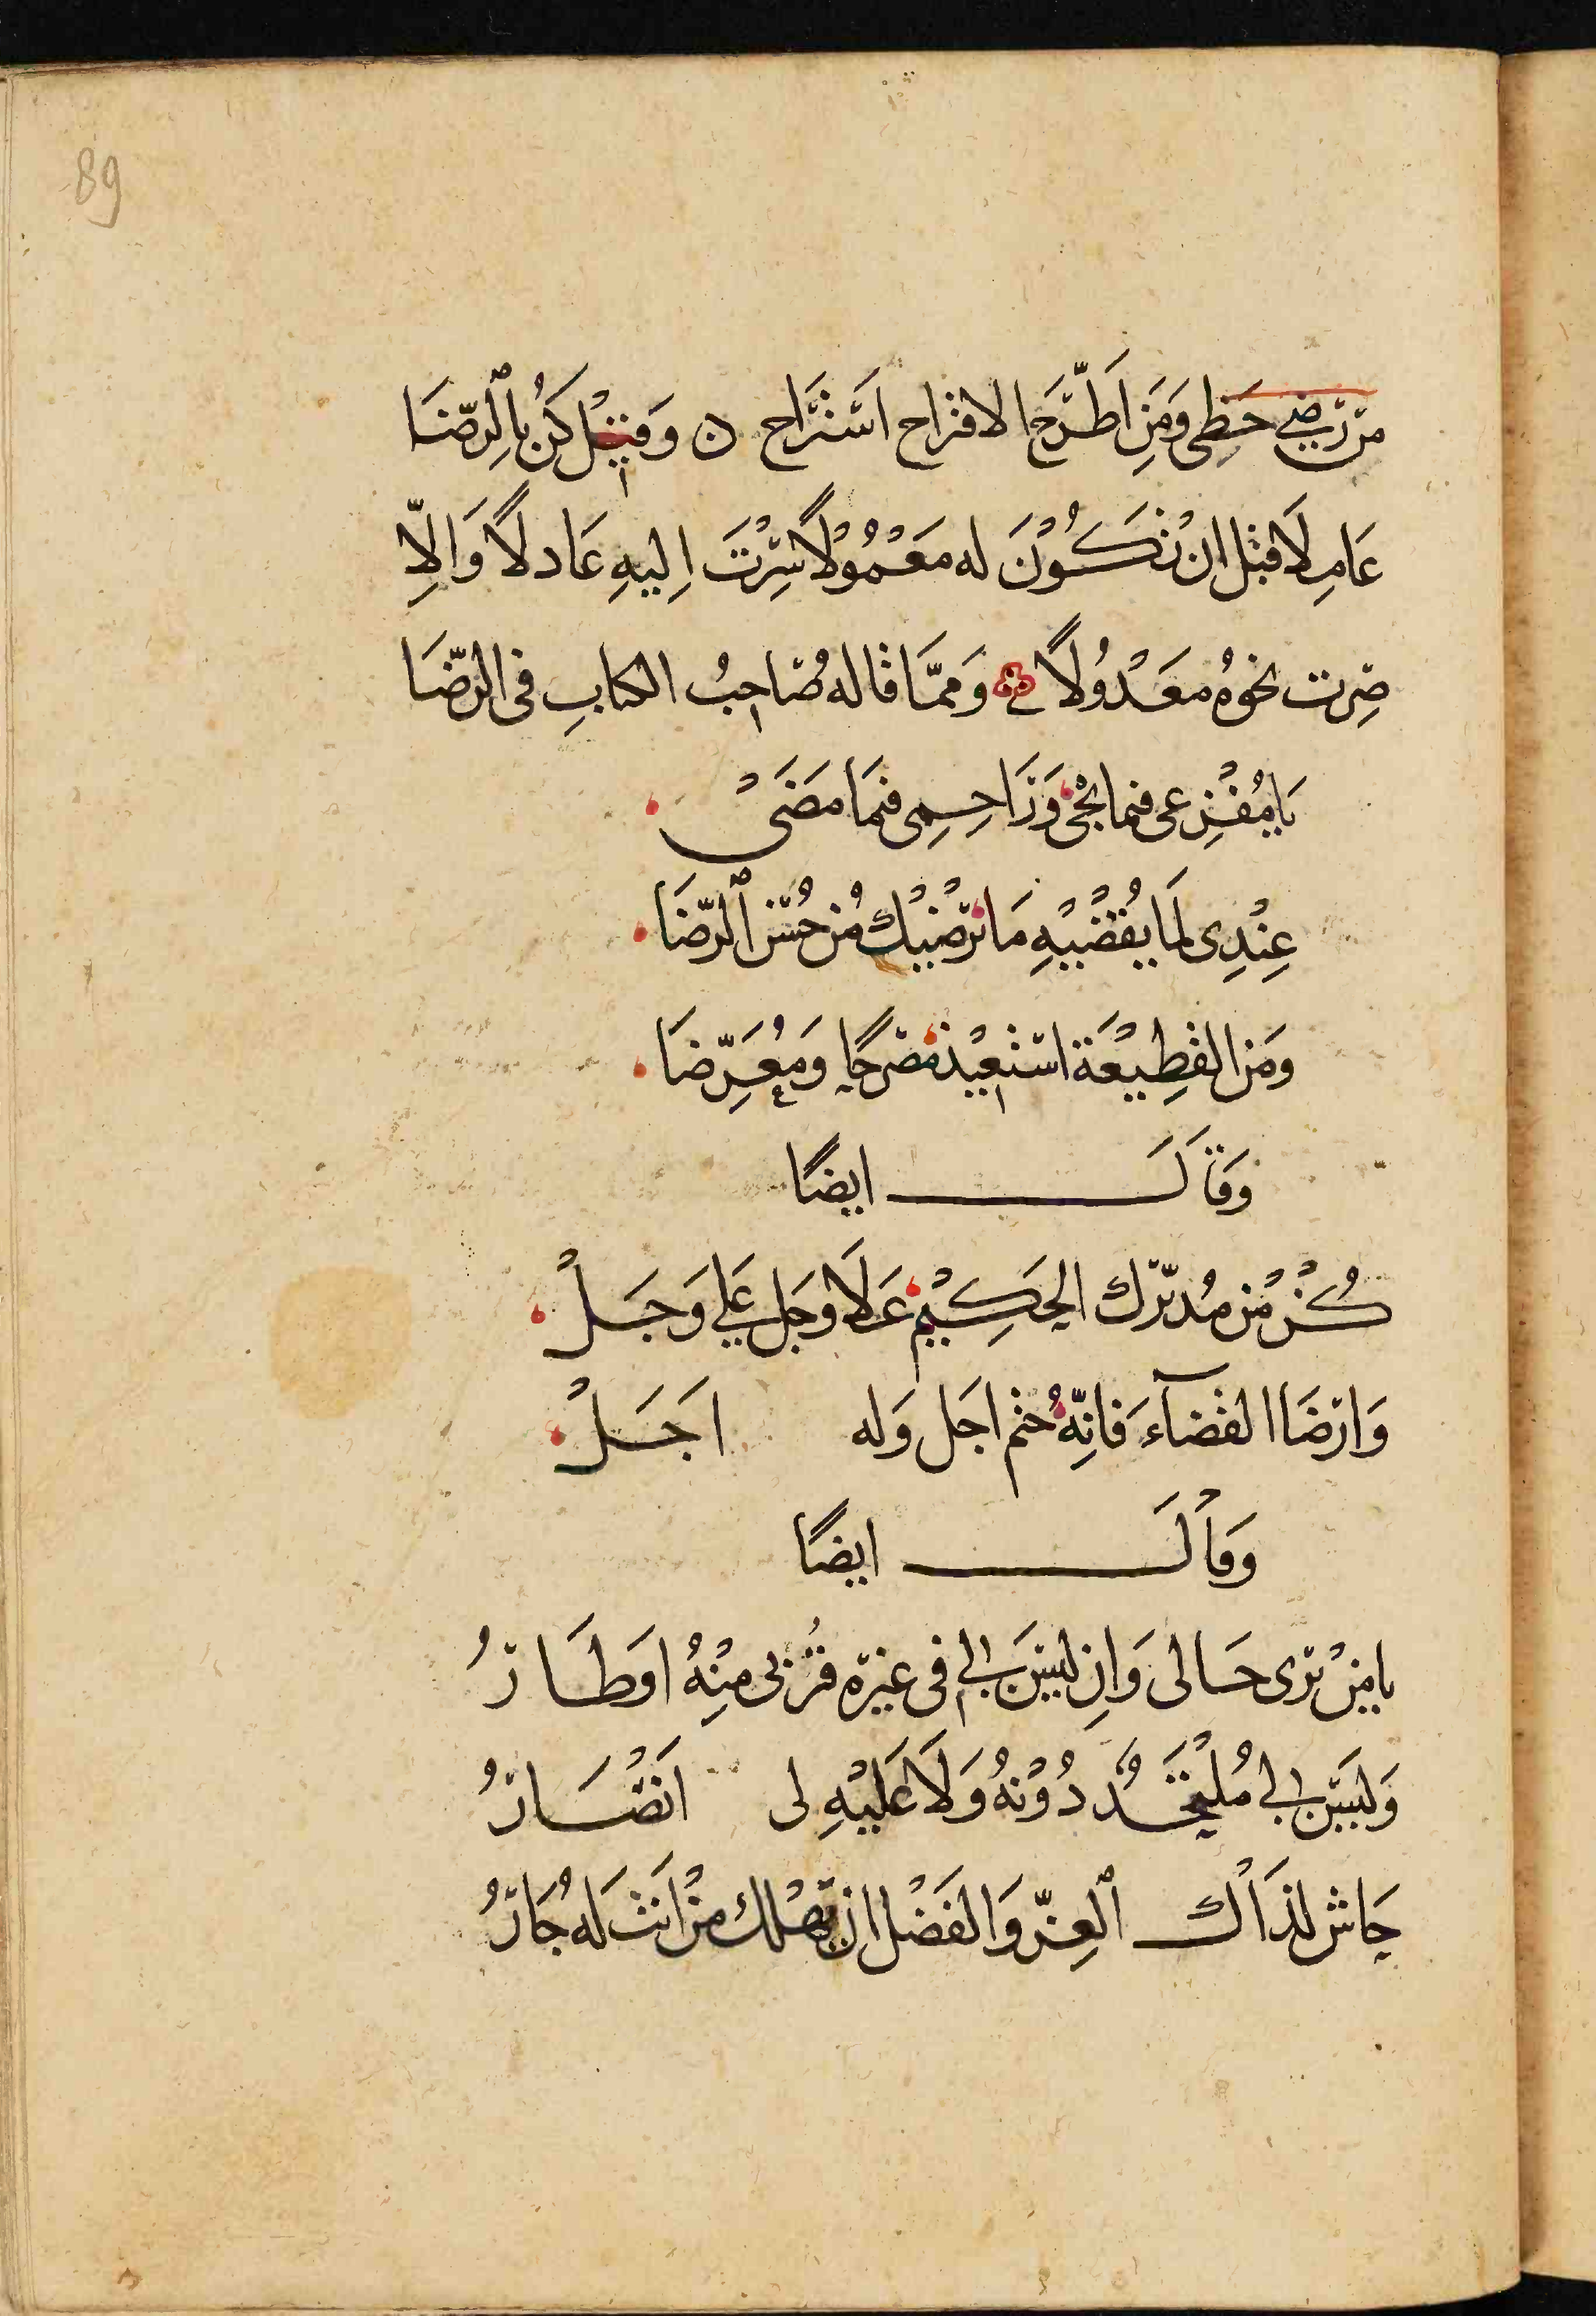 89
من رَضِي حَظِي وَمَن اَطَّرَحَ الاقتراح اَسْتَراح ن وَقيْل كُن بِالرِّضَا
عَامِلًا قبْل ان تَكُوْنَ له مَعْمُوْلًا سِرْتَ اِليهِ عَادلًا وَالِّا
صِرت نحْوهُ مَعْدُولًا وَممَّا قاله صَاحبُ الكتابِ فى الرّضَا
يَا مُفْزِعى فيما يجْئ وَرَاحِمِى فيمَا مَضَىْ
عِنْدِى لمَا يقْضْيْهِ مَا يرْضيْك مْن حُسْن الرّضَا
وَمَن القطِيْعَة اسْتعيْذ مُصرحًا وَمُعَرِّضَا
وَقَالَ ايضًا
كُنْ مْن مُدبّرك الحَكِيْم عَلَا وجَل عَلى وَجَلْ
وَارْضَا القضآءَ فانِّهُ حتم اجَل وَله اَجَلْ
وَقَالَ ايضًا
يا منْ يرَى حَالى وَاِن ليْسَ لى فى غيْرة قُرْبى منِهُ اوَطَارُ
وَليْسَ لى مُلْتَحَدٌ دُوْنهُ وَلَا عَليْهِ لى اَنْصَارُ
حَاش لذَاك العِزّ وَالفَضْل ان يهْلك منْ اَنت لَه جَارُ